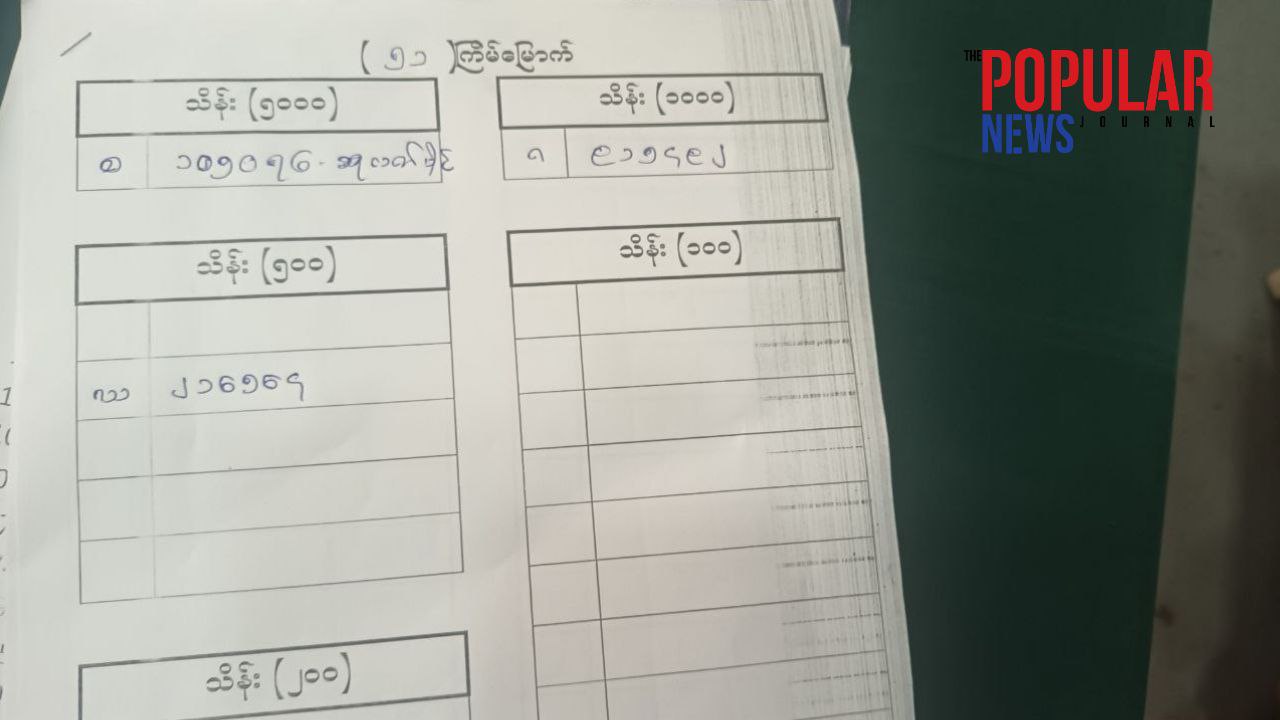 ( ၅၁ )ကြိမ်မြောက်
သိန်း (၅၀၀၀)
သိန်း (၁၀၀၀)
၁၀၅၀၇၆
ဂ ၉၁၅၄၉၂
သိန်း (၅၀၀)
သိန်း (၁၀၀)
ဿ ၂၁၆၅၆၄
သိန်း (၂၀၀)
THE
POPULAR
NEWS
JOURNAL